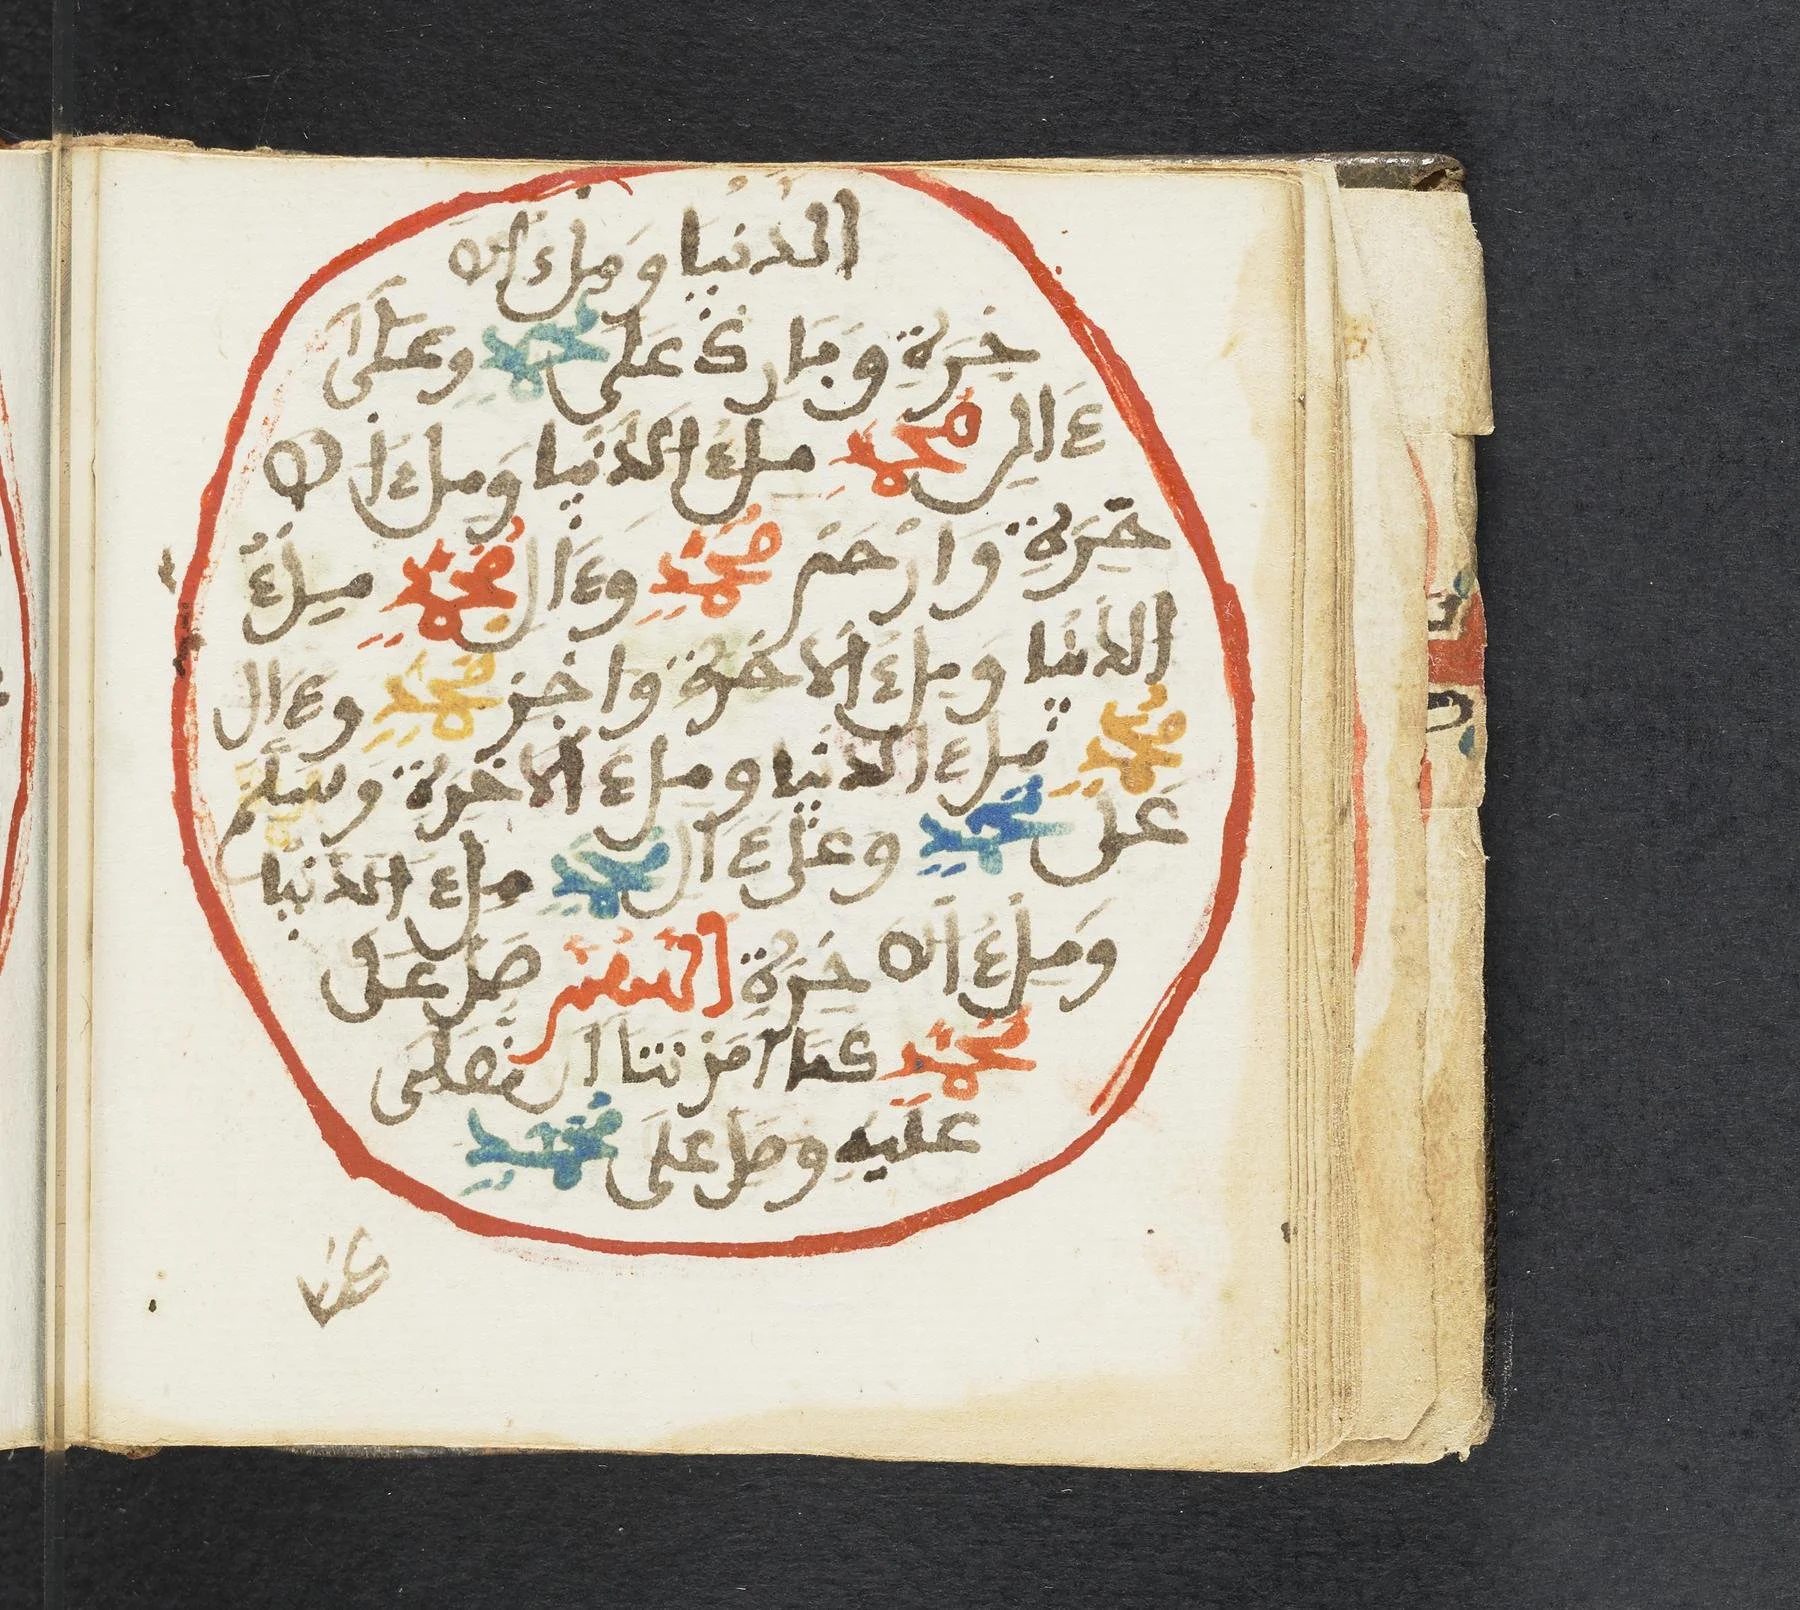 الدُّنْيَا وَمِلْءَ الا
خِرَةِ وَبَارِكْ عَلَى مُحَمَّدٍ وَعَلَىٰ
ءَالِ مُحَمَّدٍ مِلْءَ الدُّنْيَا وَمِلْءَ الا
خِرَةِ وَارْحَمْ مُحَمَّدٍ وَءَالَ مُحَمَّدٍ مِلْءَ
الدُّنْيَا وَمِلْءَ الاخِرَةِ وَاجْزِ مُحَمَّدٍ وَءَالَ
مُحَمَّدٍ مِلْءَ الدُّنْيَا وَمِلْءَ الاخِرَةِ وَسَلِّمْ
عَلَى مُحَمَّدٍ وَعَلَى ءَالِ مُحَمَّدٍ مِلْءَ الدُّنْيَا
وَمِلْءَ الاخِرَةِ اللَّهُمَّ صَلِّ عَلَى
مُحَمَّدٍ كَمَا أَمَرْتَنَا أَنْ نُصَلِّيَ
عَلَيْهِ وَصَلِّ عَلَى مُحَمَّدٍ